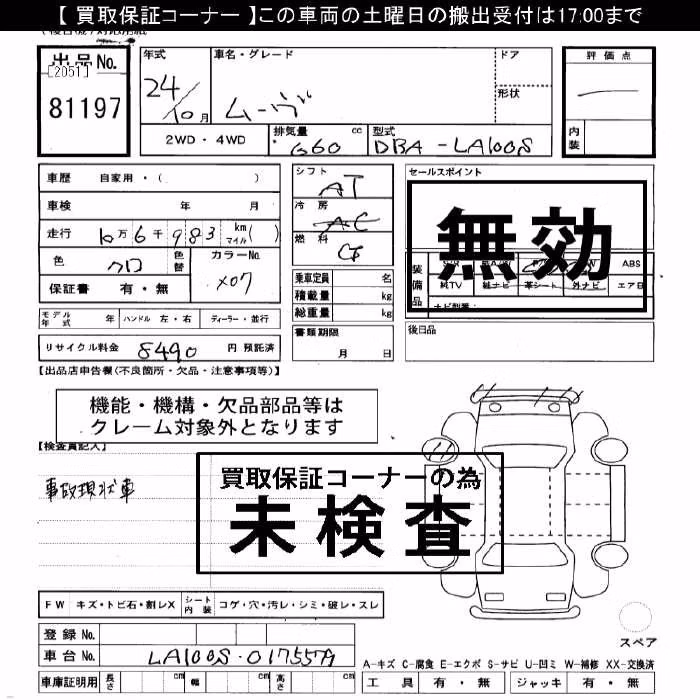 【 買取保証コーナー 】この車両の土曜日の搬出受付は17:00まで
出品No.
[2051]
81197
年式
24/10月
車名・グレード
ムーヴ
ドア
形状
評価点
内装
2WD・4WD
排気量 660 cc
型式 DBA-LA100S
車歴 自家用・( )
車検 年 月
走行 10万6千983 km マイル( )
色 クロ 色替
カラーNo. X07
保証書 有・無
シフト AT
冷房 AC
燃料
乗車定員 名
積載量 kg
総重量 kg
書類期限 月 日
セールスポイント
無効
装備品
ABS
純TV 純ナビ 革シート 外ナビ エアB
ナビ型番:
後日品
モデル年式 年 ハンドル 左・右 ディーラー・並行
リサイクル料金 8490 円 預託済
【出品店申告欄(不良箇所・欠品・注意事項等)】
機能・機構・欠品部品等は
クレーム対象外となります
【検査員記入】
買取保証コーナーの為
未検査
事故現状車
FW キズ・トビ石・割レX シート内装 コゲ・穴・汚レ・シミ・破レ・スレ
登録No.
車台No. LA100S-0175579
車庫証明用 長さ cm 幅 cm 高さ cm
スペア
A-キズ C-腐食 E-エクボ S-サビ U-凹ミ W-補修 XX-交換済
工具 有・無 ジャッキ 有・無